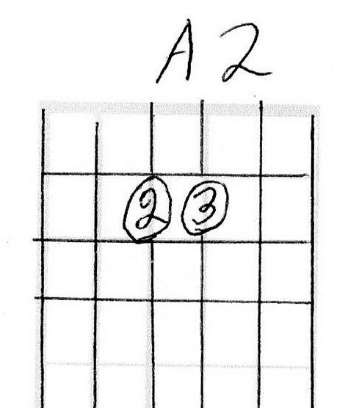 A 2
2 3